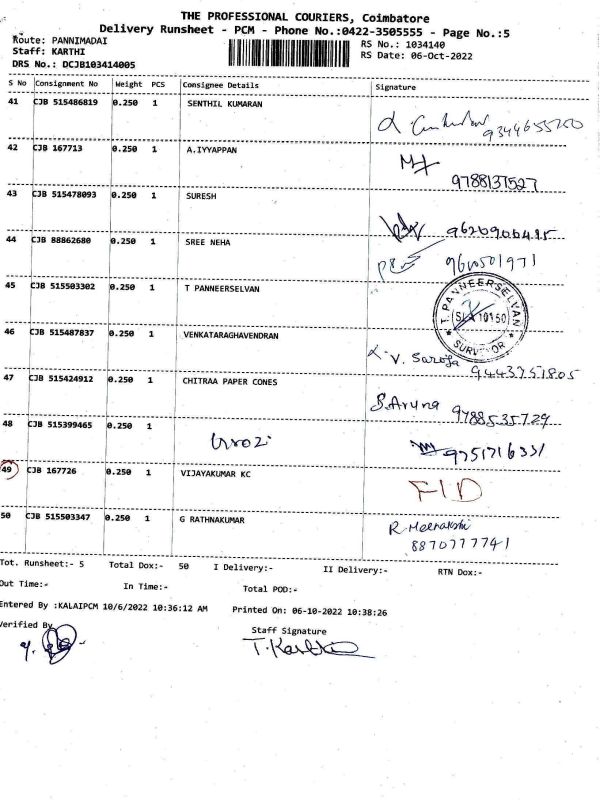 THE PROFESSIONAL COURIERS, Coimbatore
Delivery Runsheet - PCM - Phone No.:0422-3505555 - Page No.:5
Route: PANNIMADAI RS No.: 1034140
Staff: KARTHI RS Date: 06-Oct-2022
DRS No.: DCJB103414005
S No Consignment No Weight PCS Consignee Details Signature
41 CJB 515486819 0.250 1 SENTHIL KUMARAN
9344655250
42 CJB 167713 0.250 1 A.IYYAPPAN
9788137527
43 CJB 515478093 0.250 1 SURESH
44 CJB 88862680 0.250 1 SREE NEHA
45 CJB 515503302 0.250 1 T PANNEERSELVAN
T. PANNEERSELVAN
SURVEYOR
46 CJB 515487837 0.250 1 VENKATARAGHAVENDRAN
V. Saroja
9443751805
47 CJB 515424912 0.250 1 CHITRAA PAPER CONES
S.Aruna 9788535729
48 CJB 515399465 0.250 1
9751716331
49 CJB 167726 0.250 1 VIJAYAKUMAR KC
50 CJB 515503347 0.250 1 G RATHNAKUMAR
R. Meenakshi
8870777741
Tot. Runsheet:- 5 Total Dox:- 50 I Delivery:- II Delivery:- RTN Dox:-
Out Time:- In Time:- Total POD:-
Entered By :KALAIPCM 10/6/2022 10:36:12 AM Printed On: 06-10-2022 10:38:26
Verified By
Staff Signature
T. Karthi